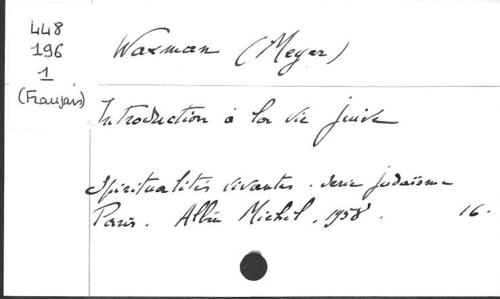 448
196
1
(Français)
Waxman (Meyer)
Introduction à la vie juive
Spiritualités vivantes. série judaïsme
Paris. Albin Michel, 1958. 16.